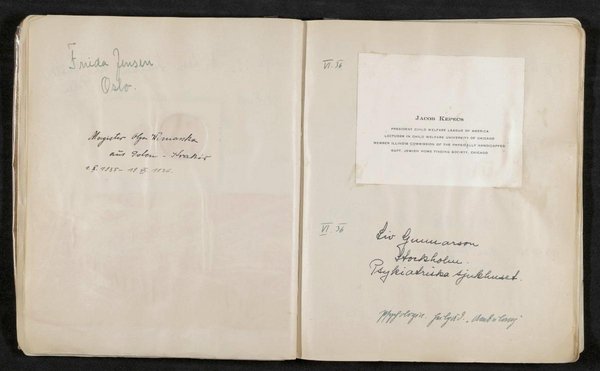 Frieda Jensen
Oslo.
Magister Olga
aus Polen - Krakau
VI. 36
JACOB KEPECS
PRESIDENT CHILD WELFARE LEAGUE OF AMERICA
LECTURER IN CHILD WELFARE UNIVERSITY OF CHICAGO
MEMBER ILLINOIS COMMISSION OF THE PHYSICALLY HANDICAPPED
SUPT. JEWISH HOME FINDING SOCIETY, CHICAGO
VI. 36
Siv Gunnarson
Stockholm.
Psykiatriska sjukhuset.